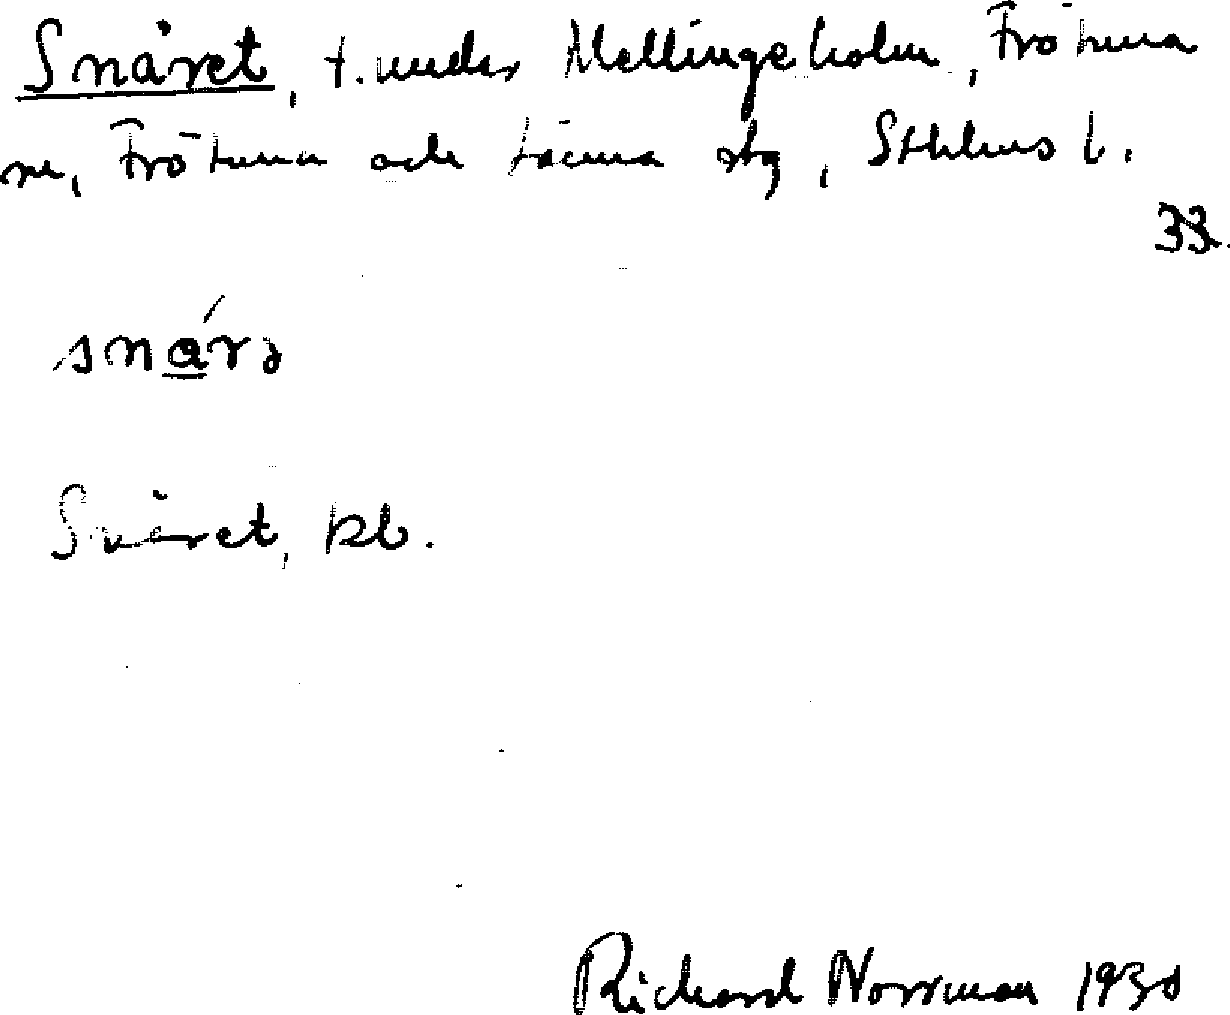 Snåret, t. under Mellingeholm, Frötuna
sn, Frötuna och Länna slg, Sthlms l.
33.
snårə
Snåret, kb.
Richard Norrman 1930